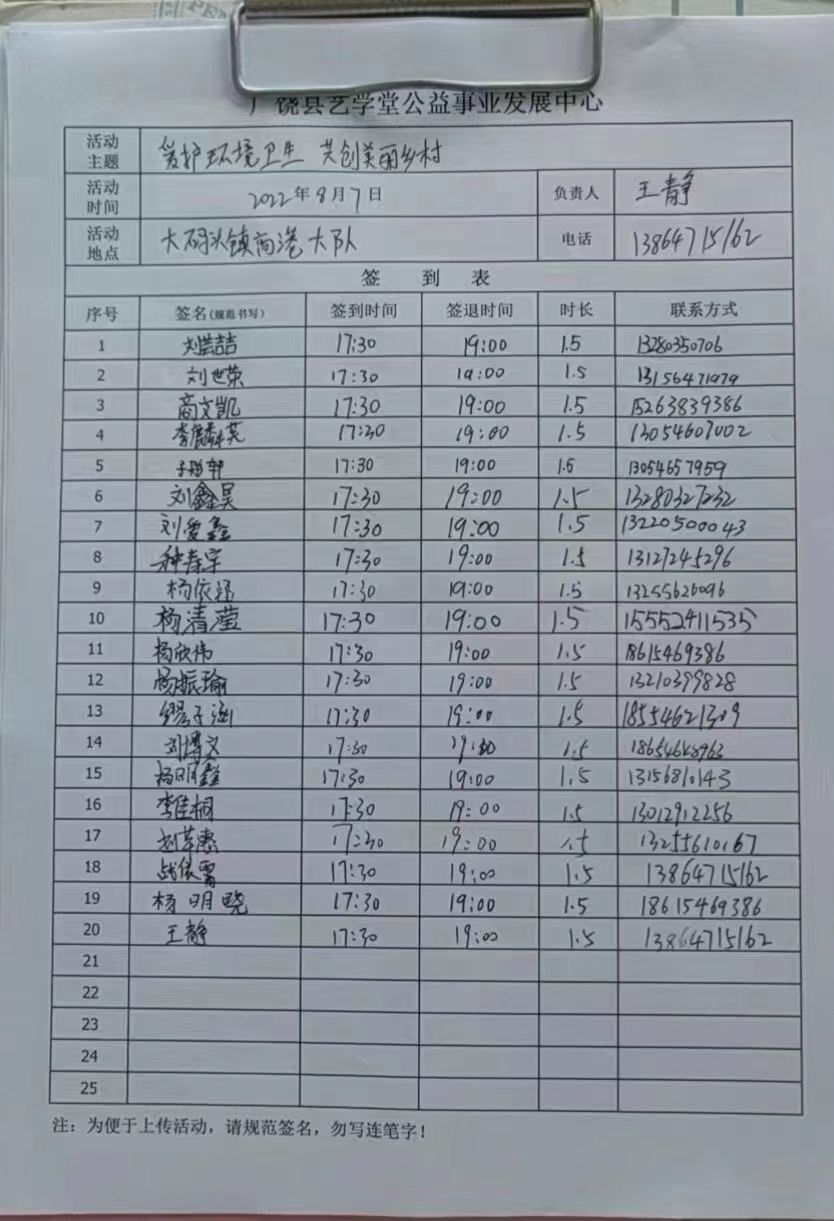 广饶县艺学堂公益事业发展中心
活动主题 爱护环境卫生 共创美丽乡村
活动时间 2022年8月7日 负责人 王静
活动地点 大码头镇商港大队 电话 13864715162
签 到 表
序号 签名(规范书写) 签到时间 签退时间 时长 联系方式
1 17:30 19:00 1.5 13280350706
2 刘世荣 17:30 19:00 1.5 13156471979
3 商文凯 17:30 19:00 1.5 15263839386
4 李麟英 17:30 19:00 1.5 13054607002
5 17:30 19:00 1.5 13054657959
6 刘鑫昊 17:30 19:00 1.5 13280327232
7 刘爱鑫 17:30 19:00 1.5 13220500043
8 种春宇 17:30 19:00 1.5 13127245296
9 杨依 17:30 19:00 1.5 13255626096
10 杨清莹 17:30 19:00 1.5 15552411535
11 杨欣伟 17:30 19:00 1.5 18615469386
12 杨振瑜 17:30 19:00 1.5 13210399828
13 缪子涵 17:30 19:00 1.5 18554621309
14 刘博文 17:30 19:00 1.5 18654648963
15 杨明鑫 17:30 19:00 1.5 13156810143
16 李佳桐 17:30 19:00 1.5 13012912256
17 17:30 19:00 1.5 13255610167
18 17:30 19:00 1.5 13864715162
19 杨明晓 17:30 19:00 1.5 18615469386
20 王静 17:30 19:00 1.5 13864715162
21
22
23
24
25
注：为便于上传活动，请规范签名，勿写连笔字！